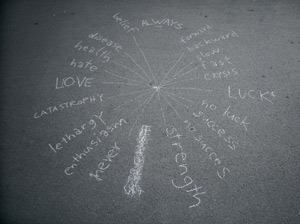 ALWAYS
forward
backward
slow
fast
crisis
LUCK
no luck
success
success
strength
never
enthusiasm
lethargy
CATASTROPHY
LOVE
hate
health
disease
belief